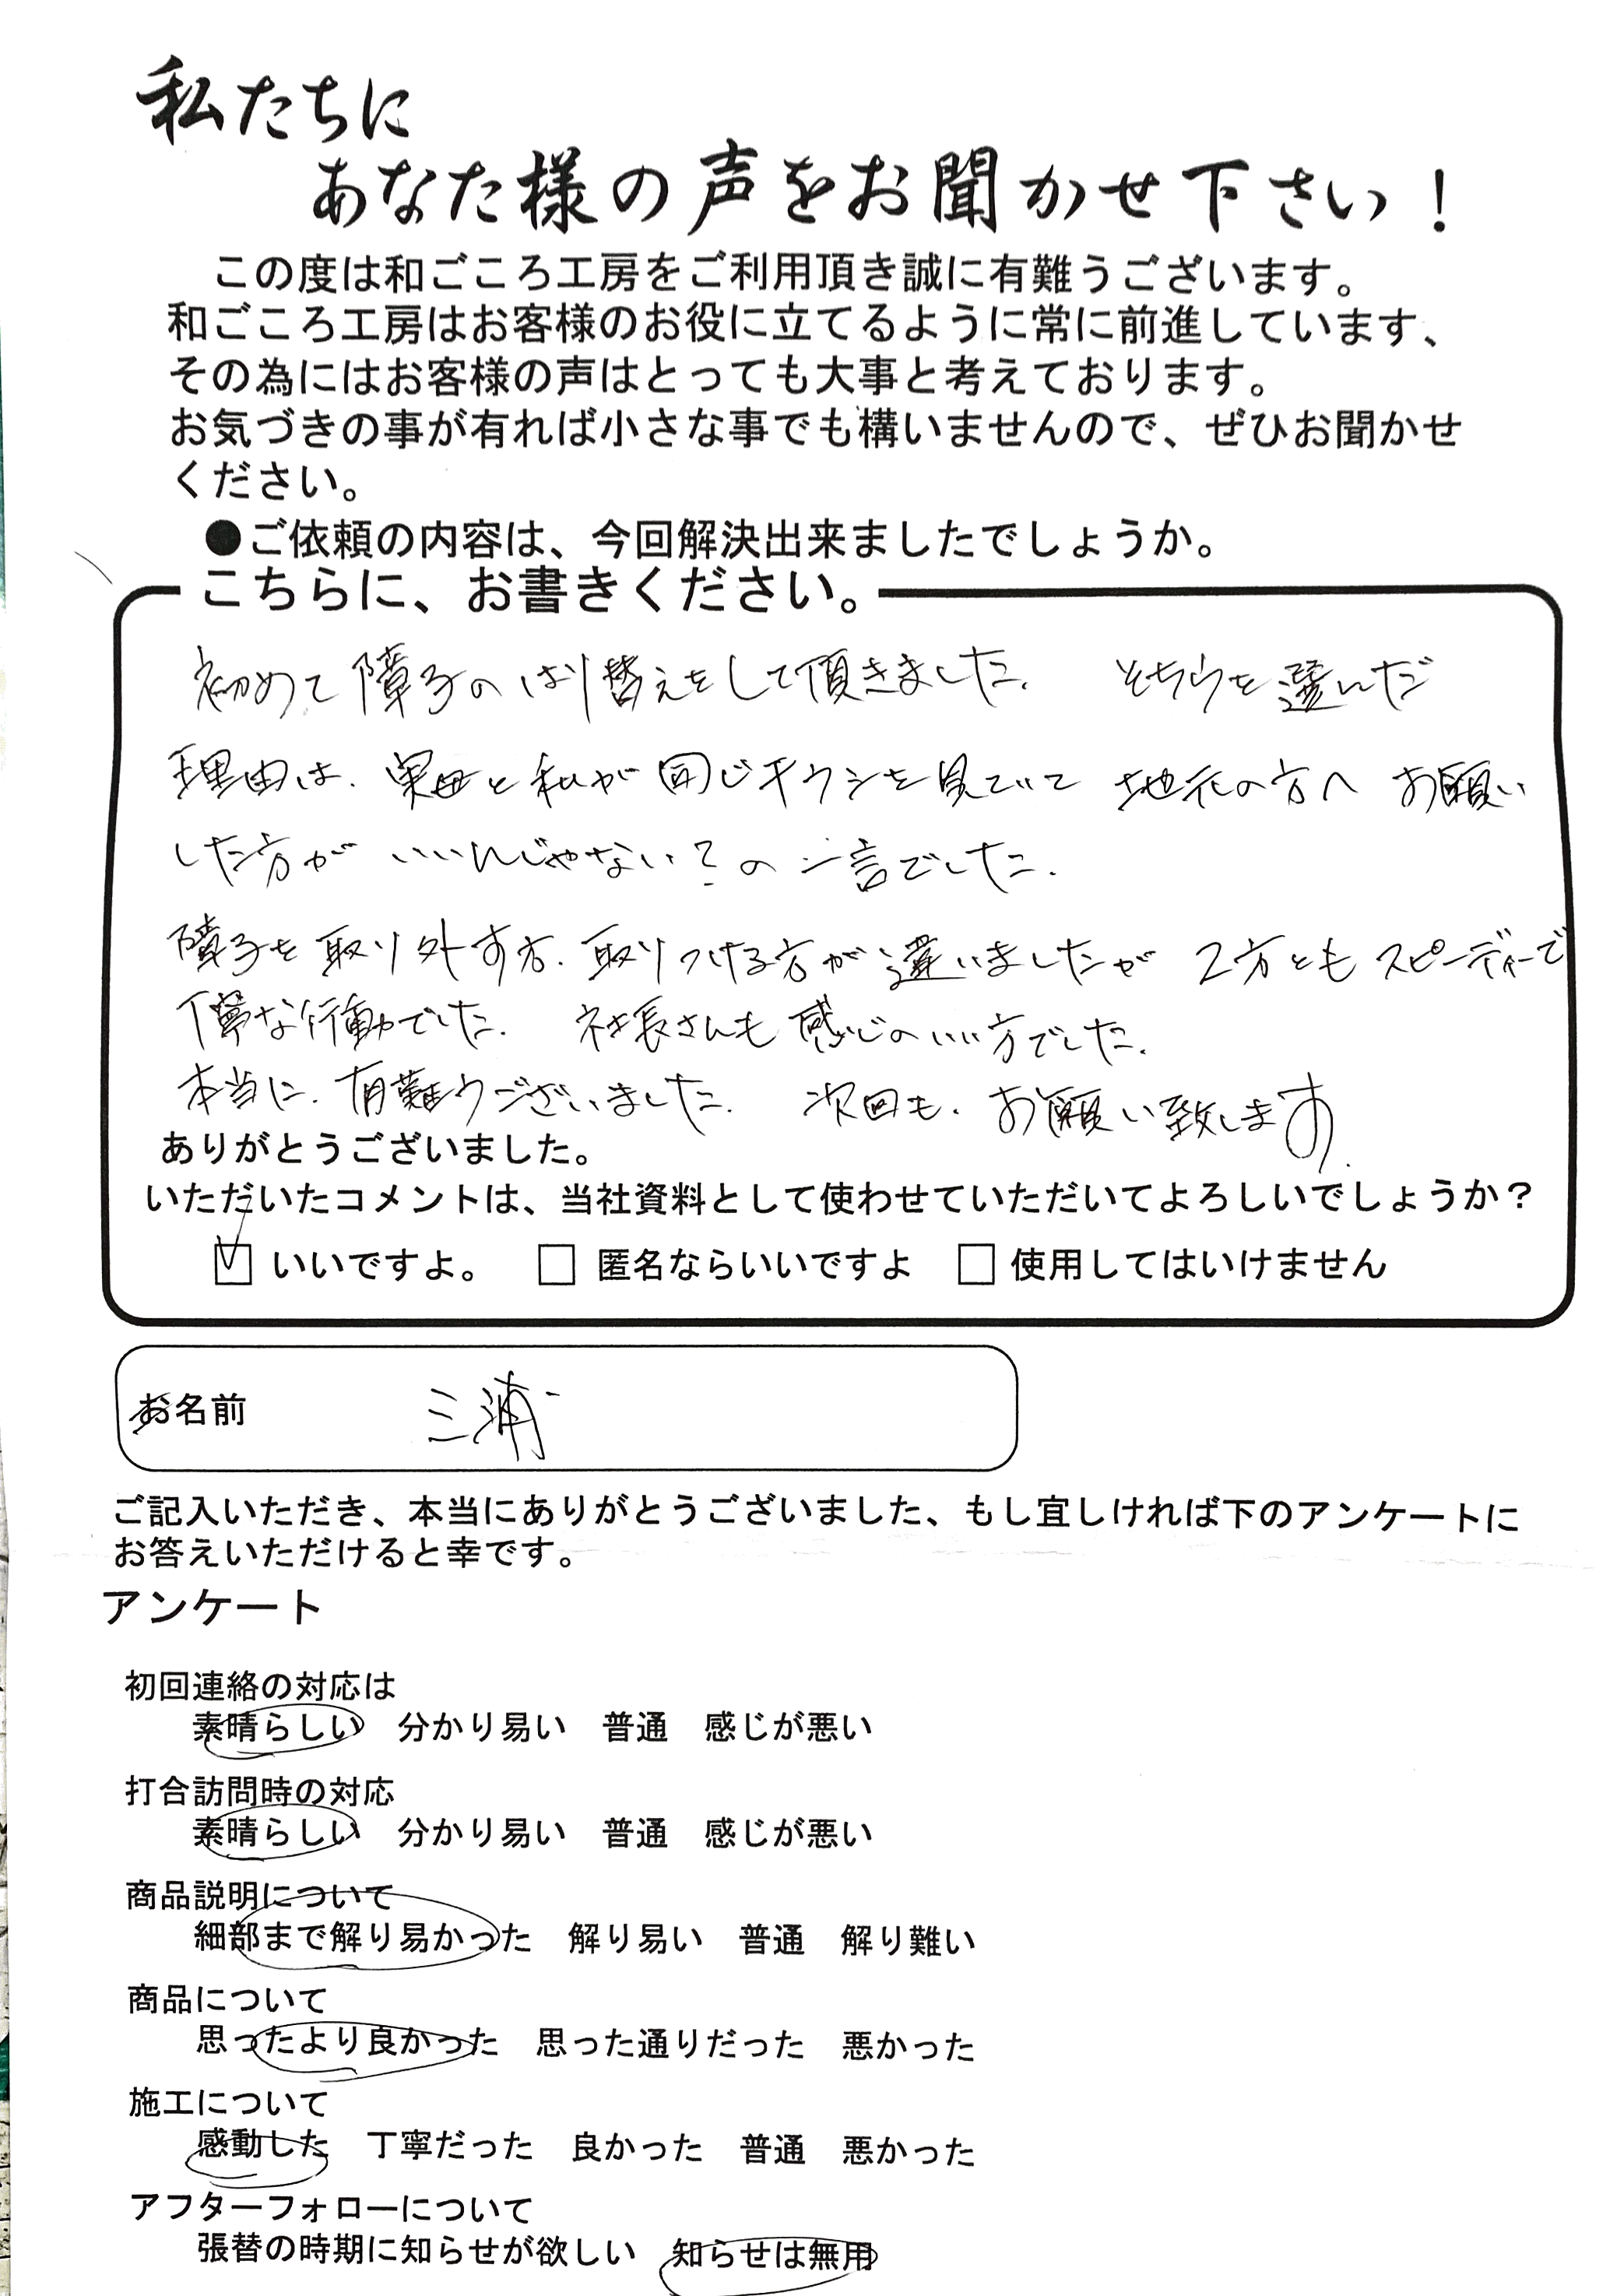 私たちに
あなた様の声をお聞かせ下さい！
この度は和ごころ工房をご利用頂き誠に有難うございます。
和ごころ工房はお客様のお役に立てるように常に前進しています、
その為にはお客様の声はとっても大事と考えております。
お気づきの事が有れば小さな事でも構いませんので、ぜひお聞かせ
ください。
●ご依頼の内容は、今回解決出来ましたでしょうか。
こちらに、お書きください。
初めて障子のはり替えをして頂きました。 そちらを選んだ
理由は、実母と私が同じチラシを見ていて 地元の方へ お願い
した方が いいんじゃない？の一言でした。
障子を取り外す方、取りつける方が違いましたが 2方ともスピーディーで
丁寧な行動でした。 社長さんも感じのいい方でした。
本当に、有難うございました。 次回も、お願い致します。
ありがとうございました。
いただいたコメントは、当社資料として使わせていただいてよろしいでしょうか？
☑ いいですよ。 □ 匿名ならいいですよ □ 使用してはいけません
お名前 三浦
ご記入いただき、本当にありがとうございました、もし宜しければ下のアンケートに
お答えいただけると幸です。
アンケート
初回連絡の対応は
素晴らしい 分かり易い 普通 感じが悪い
打合訪問時の対応
素晴らしい 分かり易い 普通 感じが悪い
商品説明について
細部まで解り易かった 解り易い 普通 解り難い
商品について
思ったより良かった 思った通りだった 悪かった
施工について
感動した 丁寧だった 良かった 普通 悪かった
アフターフォローについて
張替の時期に知らせが欲しい 知らせは無用